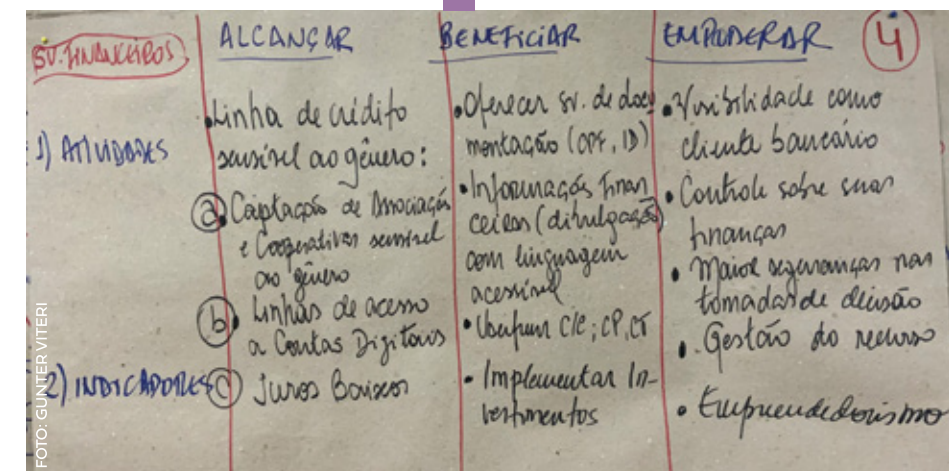 SV. FINANCEIROS
ALCANÇAR
BENEFICIAR
EMPODERAR
4
1) ATIVIDADES
Linha de crédito
sensível ao gênero:
a) Captação de Associação
e Cooperativas sensível
ao gênero
b) Linhas de acesso
a Contas Digitais
2) INDICADORES
c) Juros Baixos
• Oferecer sv. de docu
mentação (CPF, ID)
• Informações finan
ceiras (divulgação)
com linguagem
acessível
• C/C; CP, CT
• Implementar In-
vestimentos
• Visibilidade como
cliente bancário
• Controle sobre suas
finanças
• Maior segurança nas
tomadas de decisão
• Gestão do recurso
• Empreendedorismo
FOTO: GUNTER VITERI